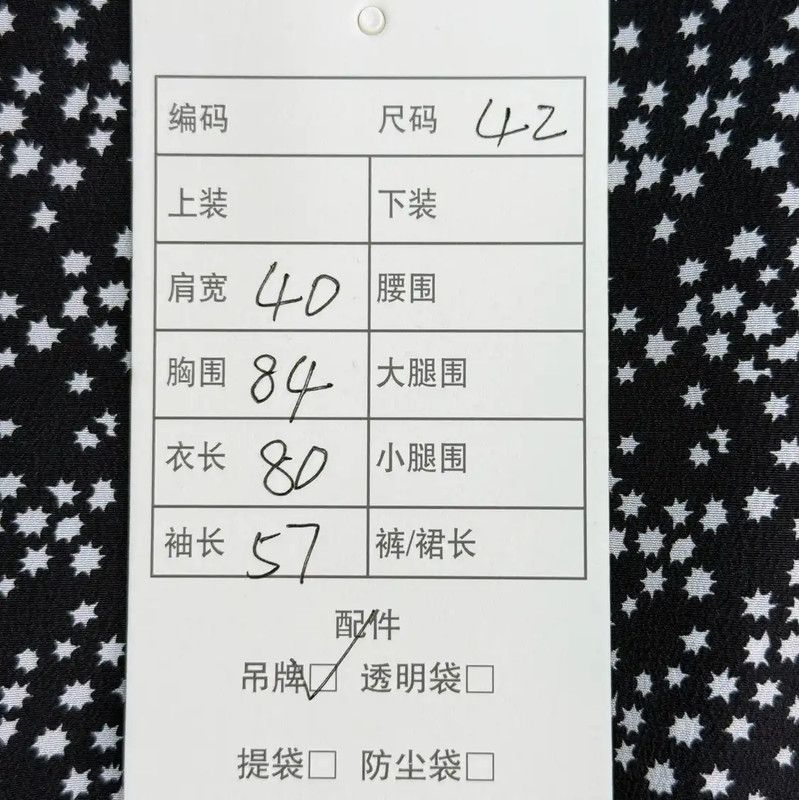 编码 尺码 42
上装 下装
肩宽 40 腰围
胸围 84 大腿围
衣长 80 小腿围
袖长 57 裤/裙长
配件
吊牌☑ 透明袋□
提袋□ 防尘袋□